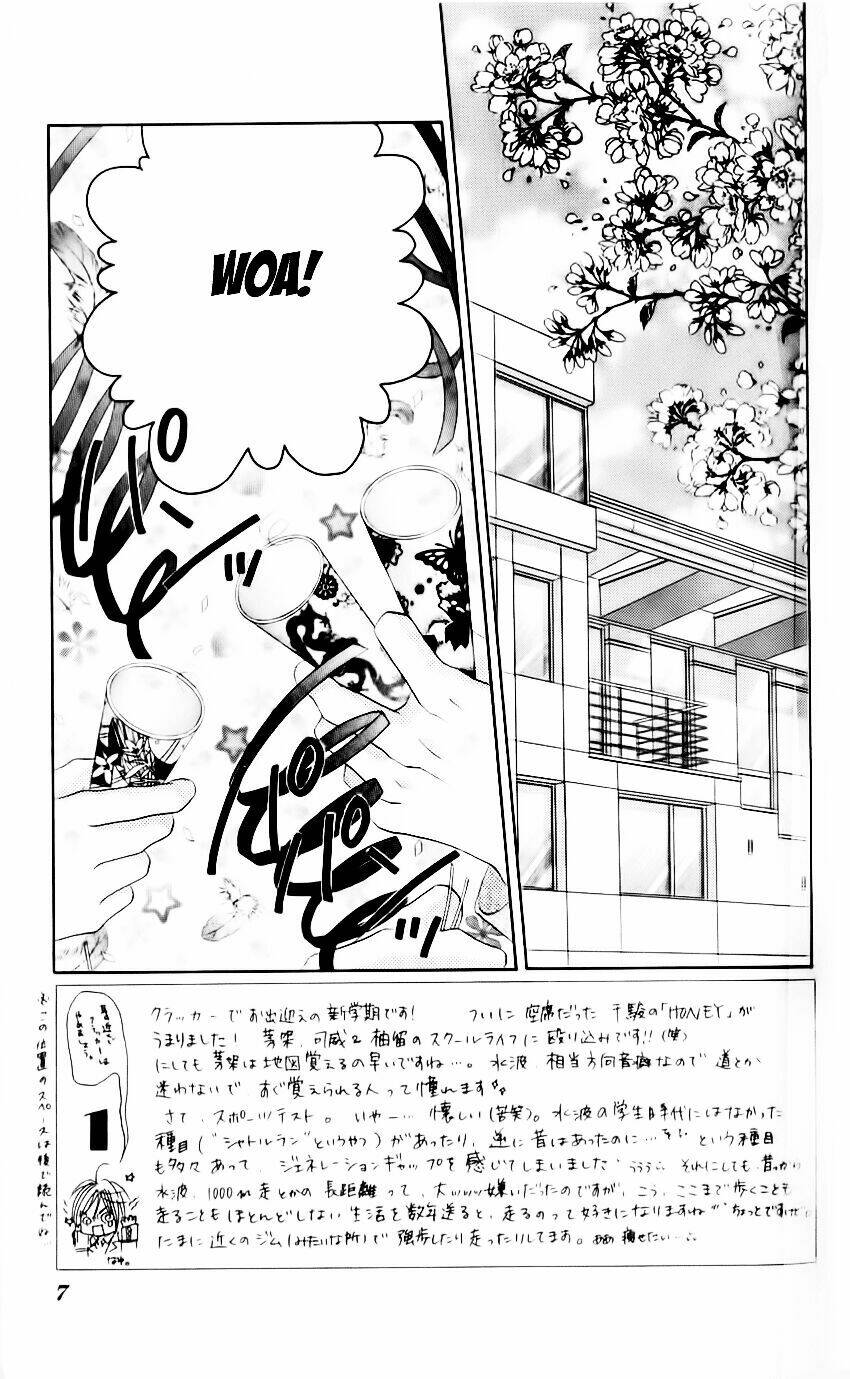 WOA!
パン
パーン
クラッカーでお出迎えの新学期です! ついに空席だった千駿の「HONEY」が
うまりました! 芽架、可威&柚留のスクールライフに殴り込みです!!(笑)
にしても芽架は地図覚えるの早いですね…。水波、相当方向音痴なので道とか
迷わないで すぐ覚えられる人って憧れます
さて、スポーツテスト。いやー…懐しい(苦笑)。水波の学生時代にはなかった
種目("シャトルラン"というやつ)があったり、逆に昔はあったのに…という種目
も多々あって、ジェネレーションギャップを感じてしまいました うううう それにしても、昔っから
水波、1000m走とかの長距離って、大ッッッ嫌いだったのですが、こう、ここまで歩くことも
走ることもほとんどしない生活を数年送ると、走るのって好きになりますね ちょっとですけど
たまに近くのジム(みたいな所)で強歩したり走ったりしてます。ああ痩せたい…
1
なゆ。
※この位置のスペースは後で読んでね…
7